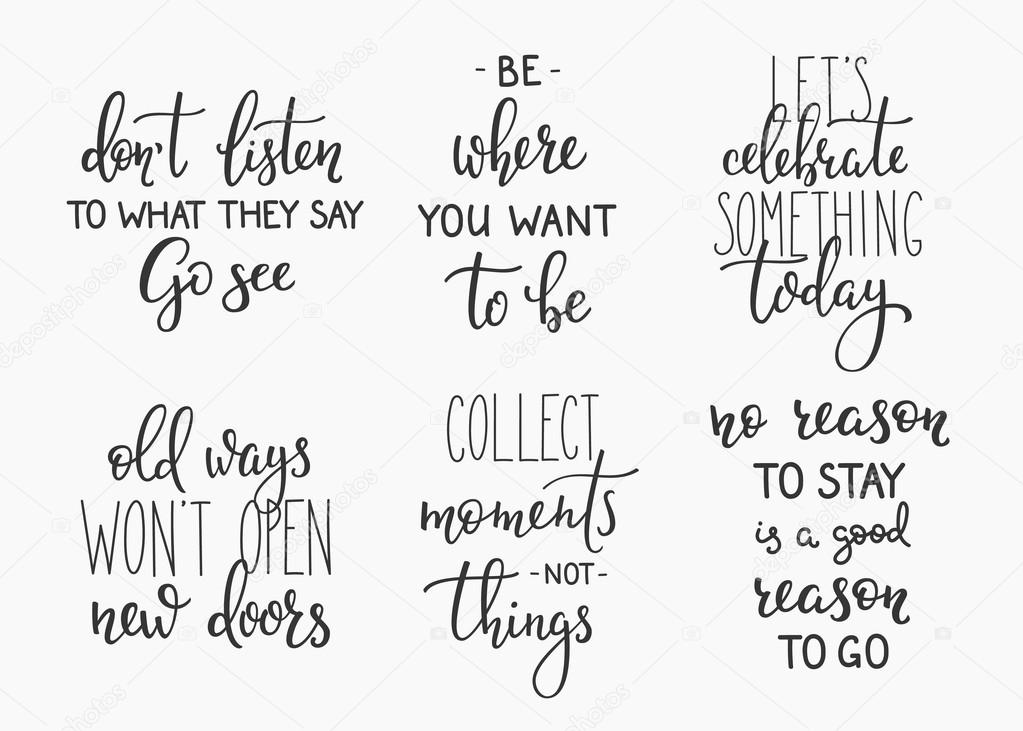 don't listen
TO WHAT THEY SAY
Go see
- BE -
where
YOU WANT
to be
LET'S
celebrate
SOMETHING
today
old ways
WON'T OPEN
new doors
COLLECT
moments
- NOT -
things
no reason
TO STAY
is a good
reason
TO GO
depositphotos